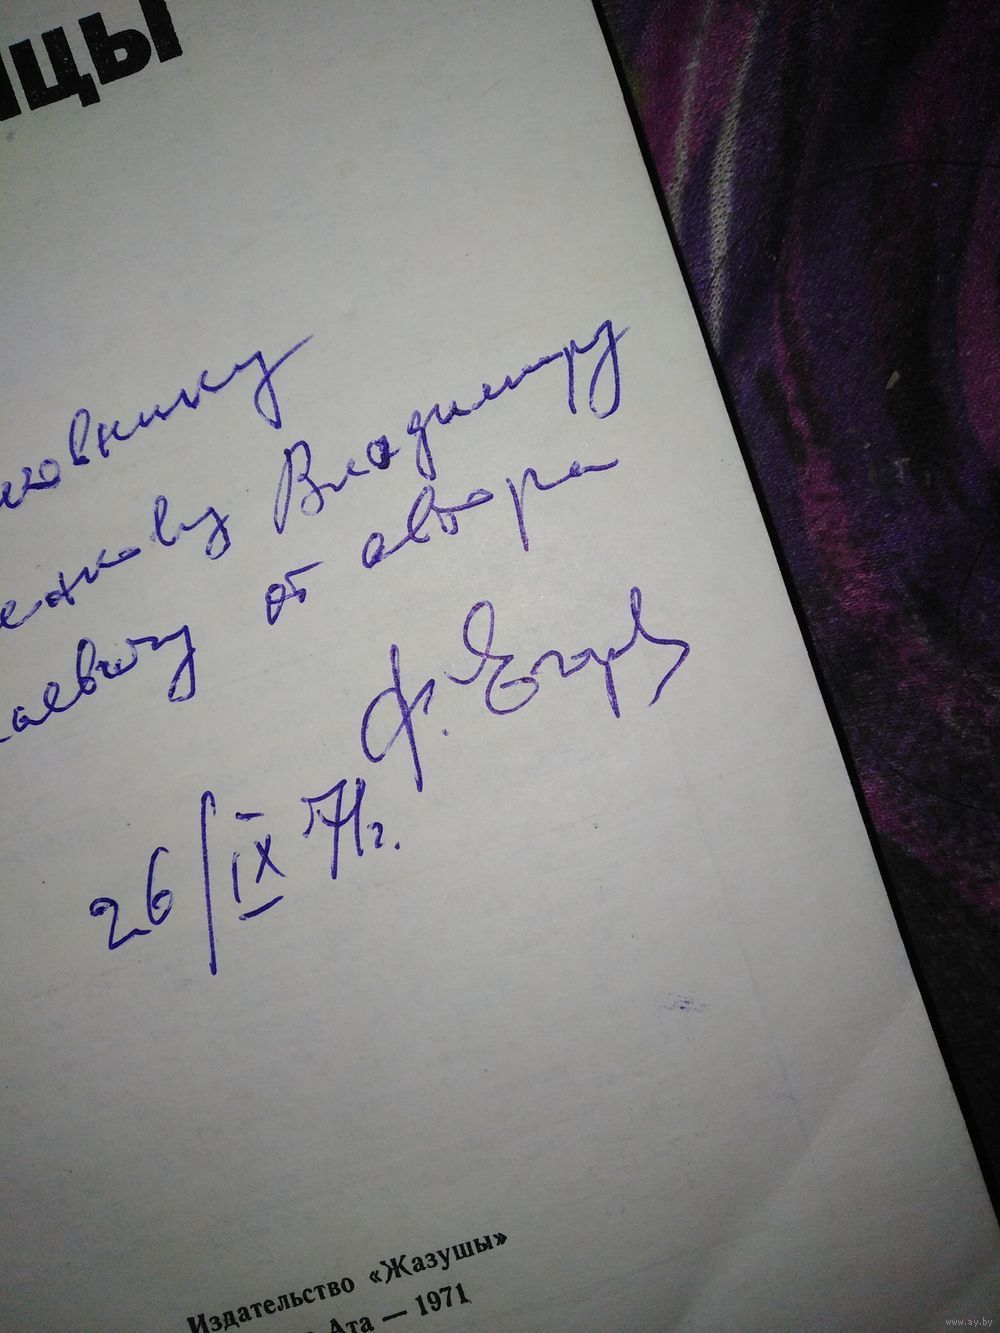 ицы
ковнику
енкову Владимиру
лаевичу от автора
Ф. Егоров
26/IX 71г.
Издательство «Жазушы»
Ата — 1971
www.ay.by